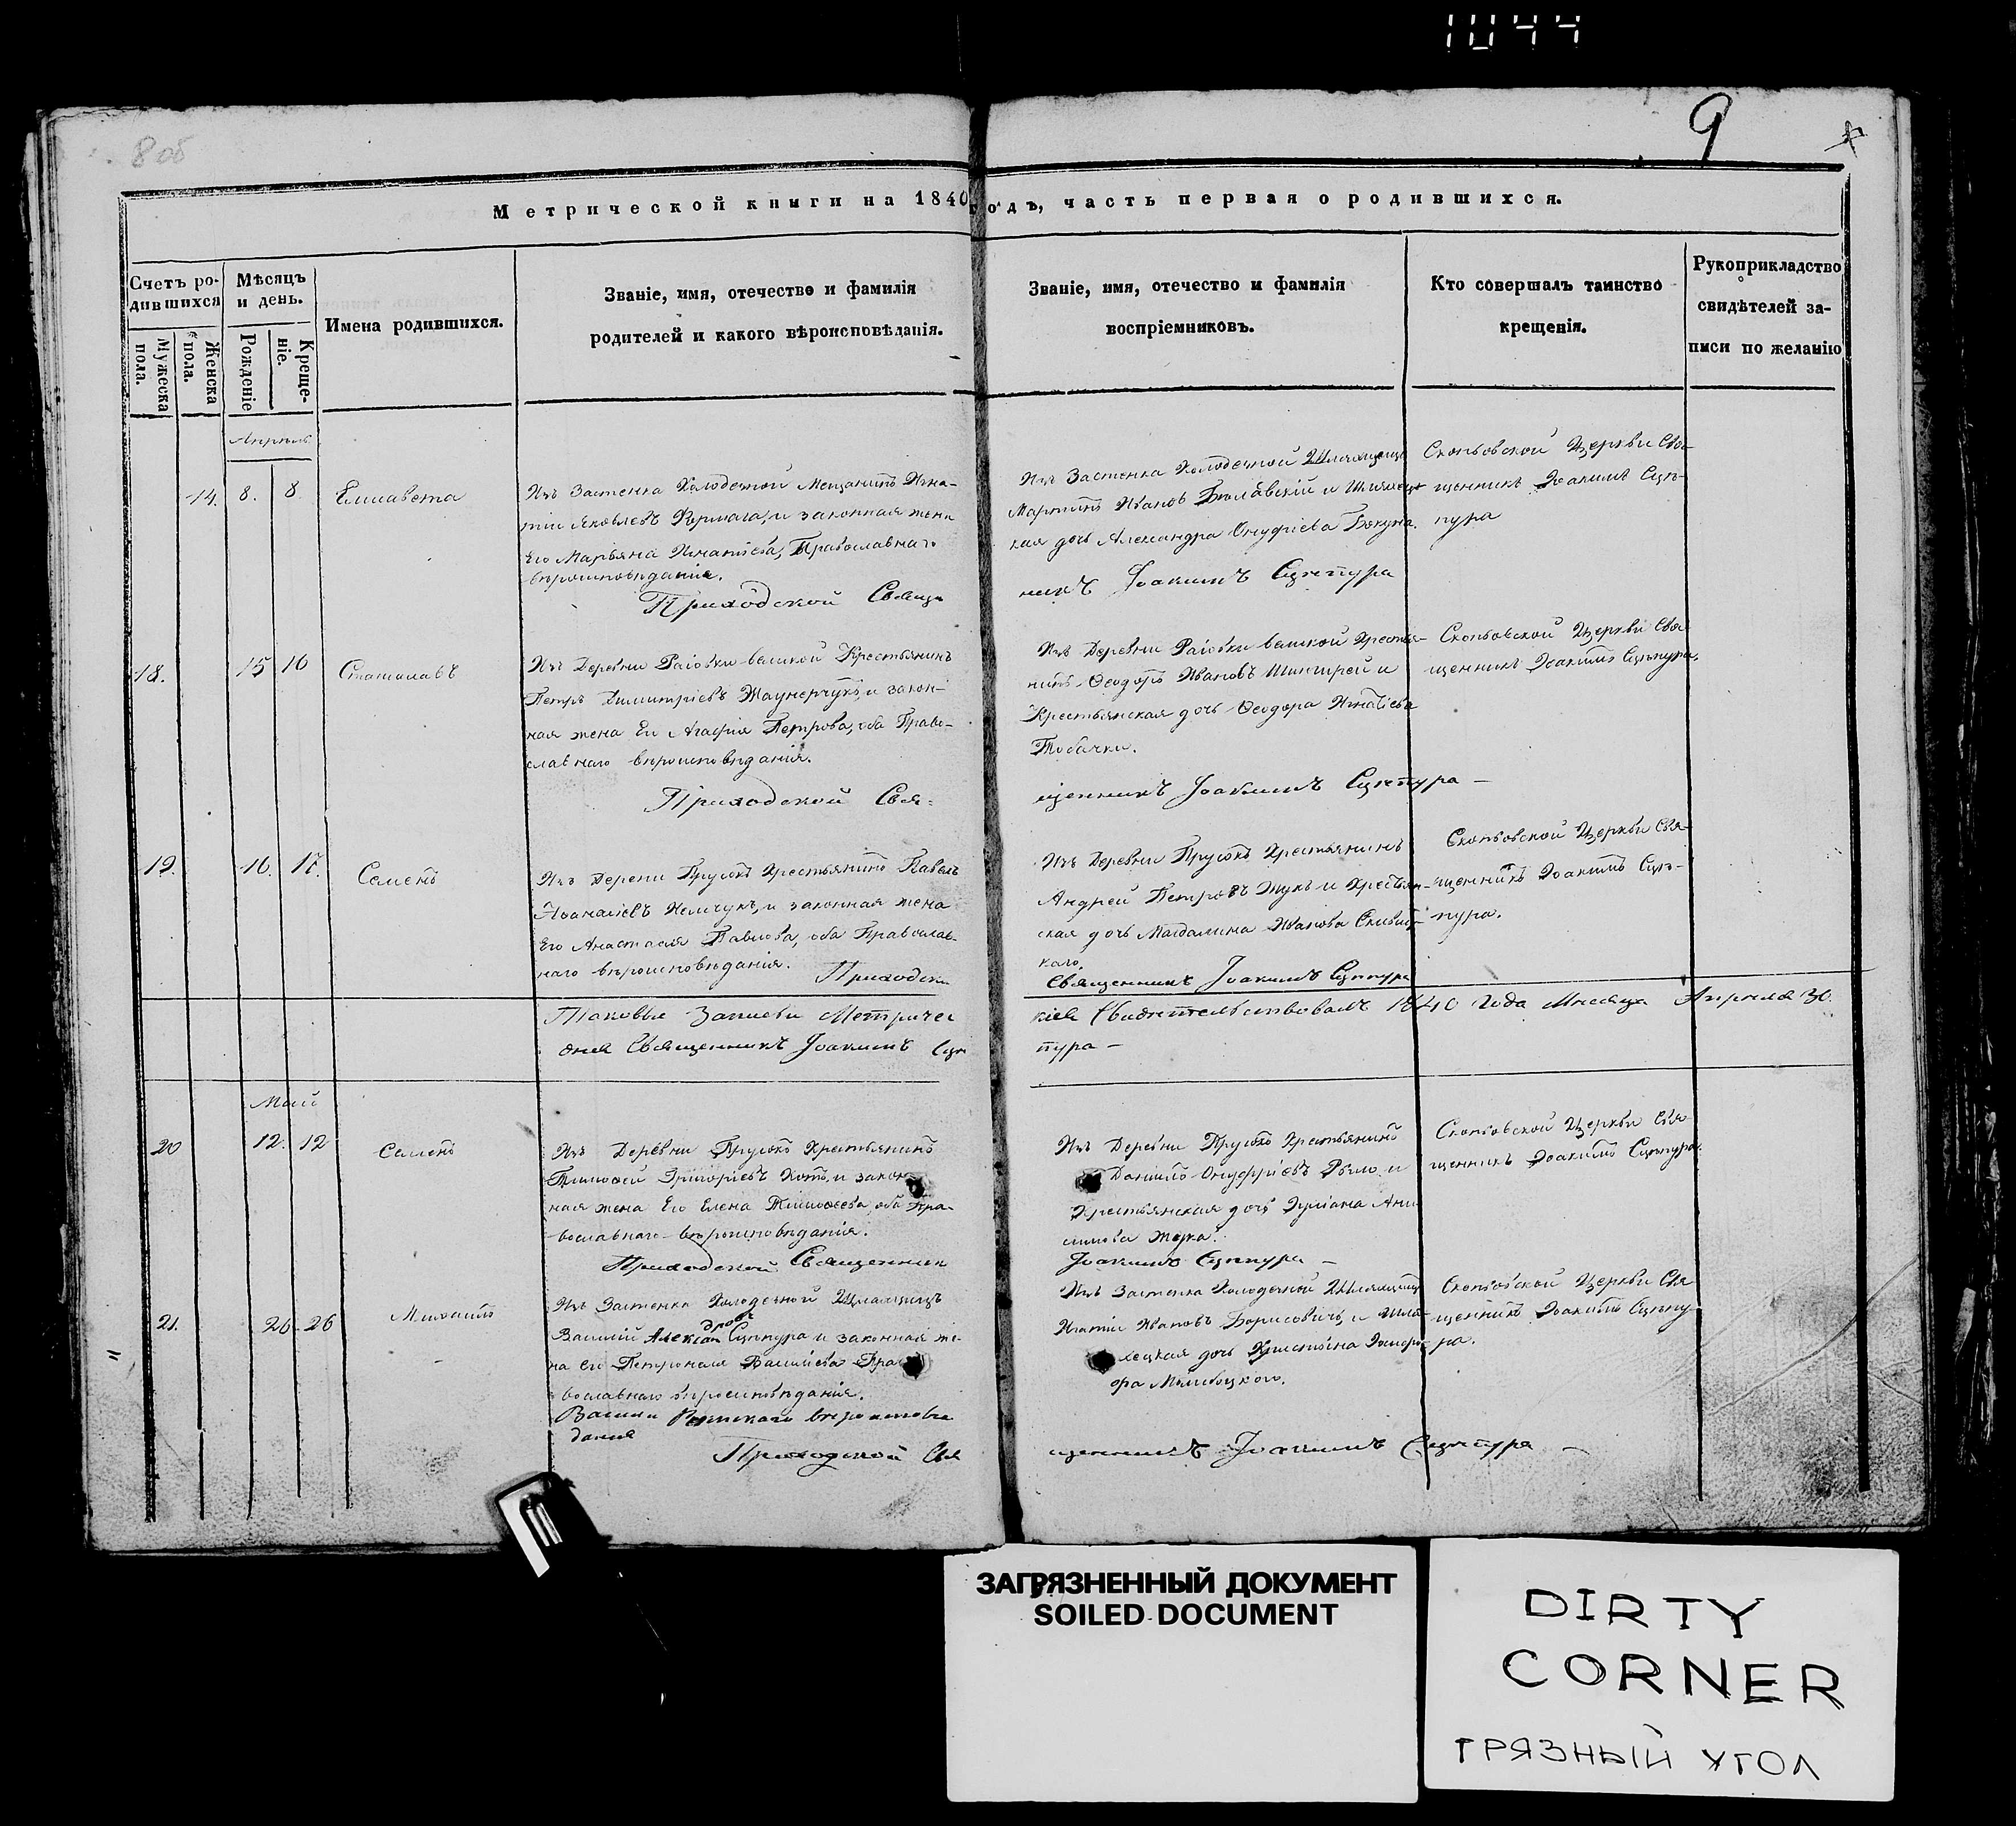 1044
8 об
9
Метрической книги на 1840 годъ, часть первая о родившихся.
Счетъ ро-
дившихся
Мужеска
пола.
Женска
пола.
Мѣсяцъ
и день.
Рожденіе
Креще-
ніе.
Имена родившихся.
Званіе, имя, отечество и фамилія
родителей и какого вѣроисповѣданія.
Званіе, имя, отечество и фамилія
воспріемниковъ.
Кто совершалъ таинство
крещенія.
Рукоприкладство
свидѣтелей за-
писи по желанію
Апрѣль
14. 8. 8. Елисавета
Изъ Застенка Холодечной Мещанинъ Игна-
тій Яковлевъ и законная жена
Его Марьяна Игнатіева, Православнаго
вѣроисповѣданія.
Изъ Застенка Холодечной
Мартинъ Ивановъ и
кая дочь Александра Онуфріева
Скоповской Церкви Свя-
щенникъ Іоакимъ Сцѣ-
пура
Приходской Священ
никъ Іоакимъ Сцепура
18. 15 16 Станиславъ
Изъ Деревни Раговки великой Крестьянинъ
Петръ Димитріевъ и закон-
ная жена Его Агафія Петрова, оба Право-
славнаго вѣроисповѣданія.
Изъ Деревни Раговки великой Крестья-
нинъ Ѳеодоръ Ивановъ и
Крестьянская дочь Ѳеодора Игнатіева
Скоповской Церкви Свя-
щенникъ Іоакимъ Сцѣпура.
Приходской Свя-
щенникъ Іоакимъ Сцепура –
19. 16. 17. Семенъ
Изъ Дерени Прусокъ Крестьянинъ Павелъ
и законная жена
Его Анастасія Павлова, оба Православ-
наго вѣроисповѣданія.
Изъ Деревни Прусокъ Крестьянинъ
Андрей Петровъ Жукъ и Крестьян-
ская дочь Магдалина Иванова
каго.
Скоповской Церкви Свя-
щенникъ Іоакимъ Сцѣ-
пура.
Приходск
Священникъ Іоакимъ Сцепура
Таковые Записи Метричес
кіея Свидѣтельствовалъ 1840 Года Месяца Апреля 30.
дня Священникъ Іоакимъ Сце
пура –
Май
20 12. 12 Семенъ
Изъ Деревни Прусокъ Крестьянинъ
Тимоѳей Григоріевъ Котъ, и закон-
ная жена Его Елена Тимоѳеева, оба Пра-
вославнаго вѣроисповѣданія.
Изъ Деревни Прусокъ Крестьянинъ
Даниилъ Онуфріевъ и
Крестьянская дочь Ани
симова Жука.
Скоповской Церкви Свя-
щенникъ Іоакимъ Сцѣпура.
Приходской Священник
Іоакимъ Сцепура –
21. 26. 26 Михаилъ
Изъ Застенка Холодечной Шляхтичъ
дровъ
Василій Алексан Сцѣпура и законная же-
на его Петронеля Васильева Пра
вославнаго вѣроисповѣданія.
Римскаго вѣроисповѣ
данія
Изъ Застенка Холодечной
Игнатій Ивановъ Борисовичъ, и Шля-
хецкая дочь Христина
Скоповской Церкви Свя
щенникъ Іоакимъ Сцѣпу-
ра.
Приходской Свя
щенникъ Іоакимъ Сцепура –
ЗАГРЯЗНЕННЫЙ ДОКУМЕНТ
SOILED DOCUMENT
DIRTY
CORNER
ГРЯЗНЫЙ УГОЛ